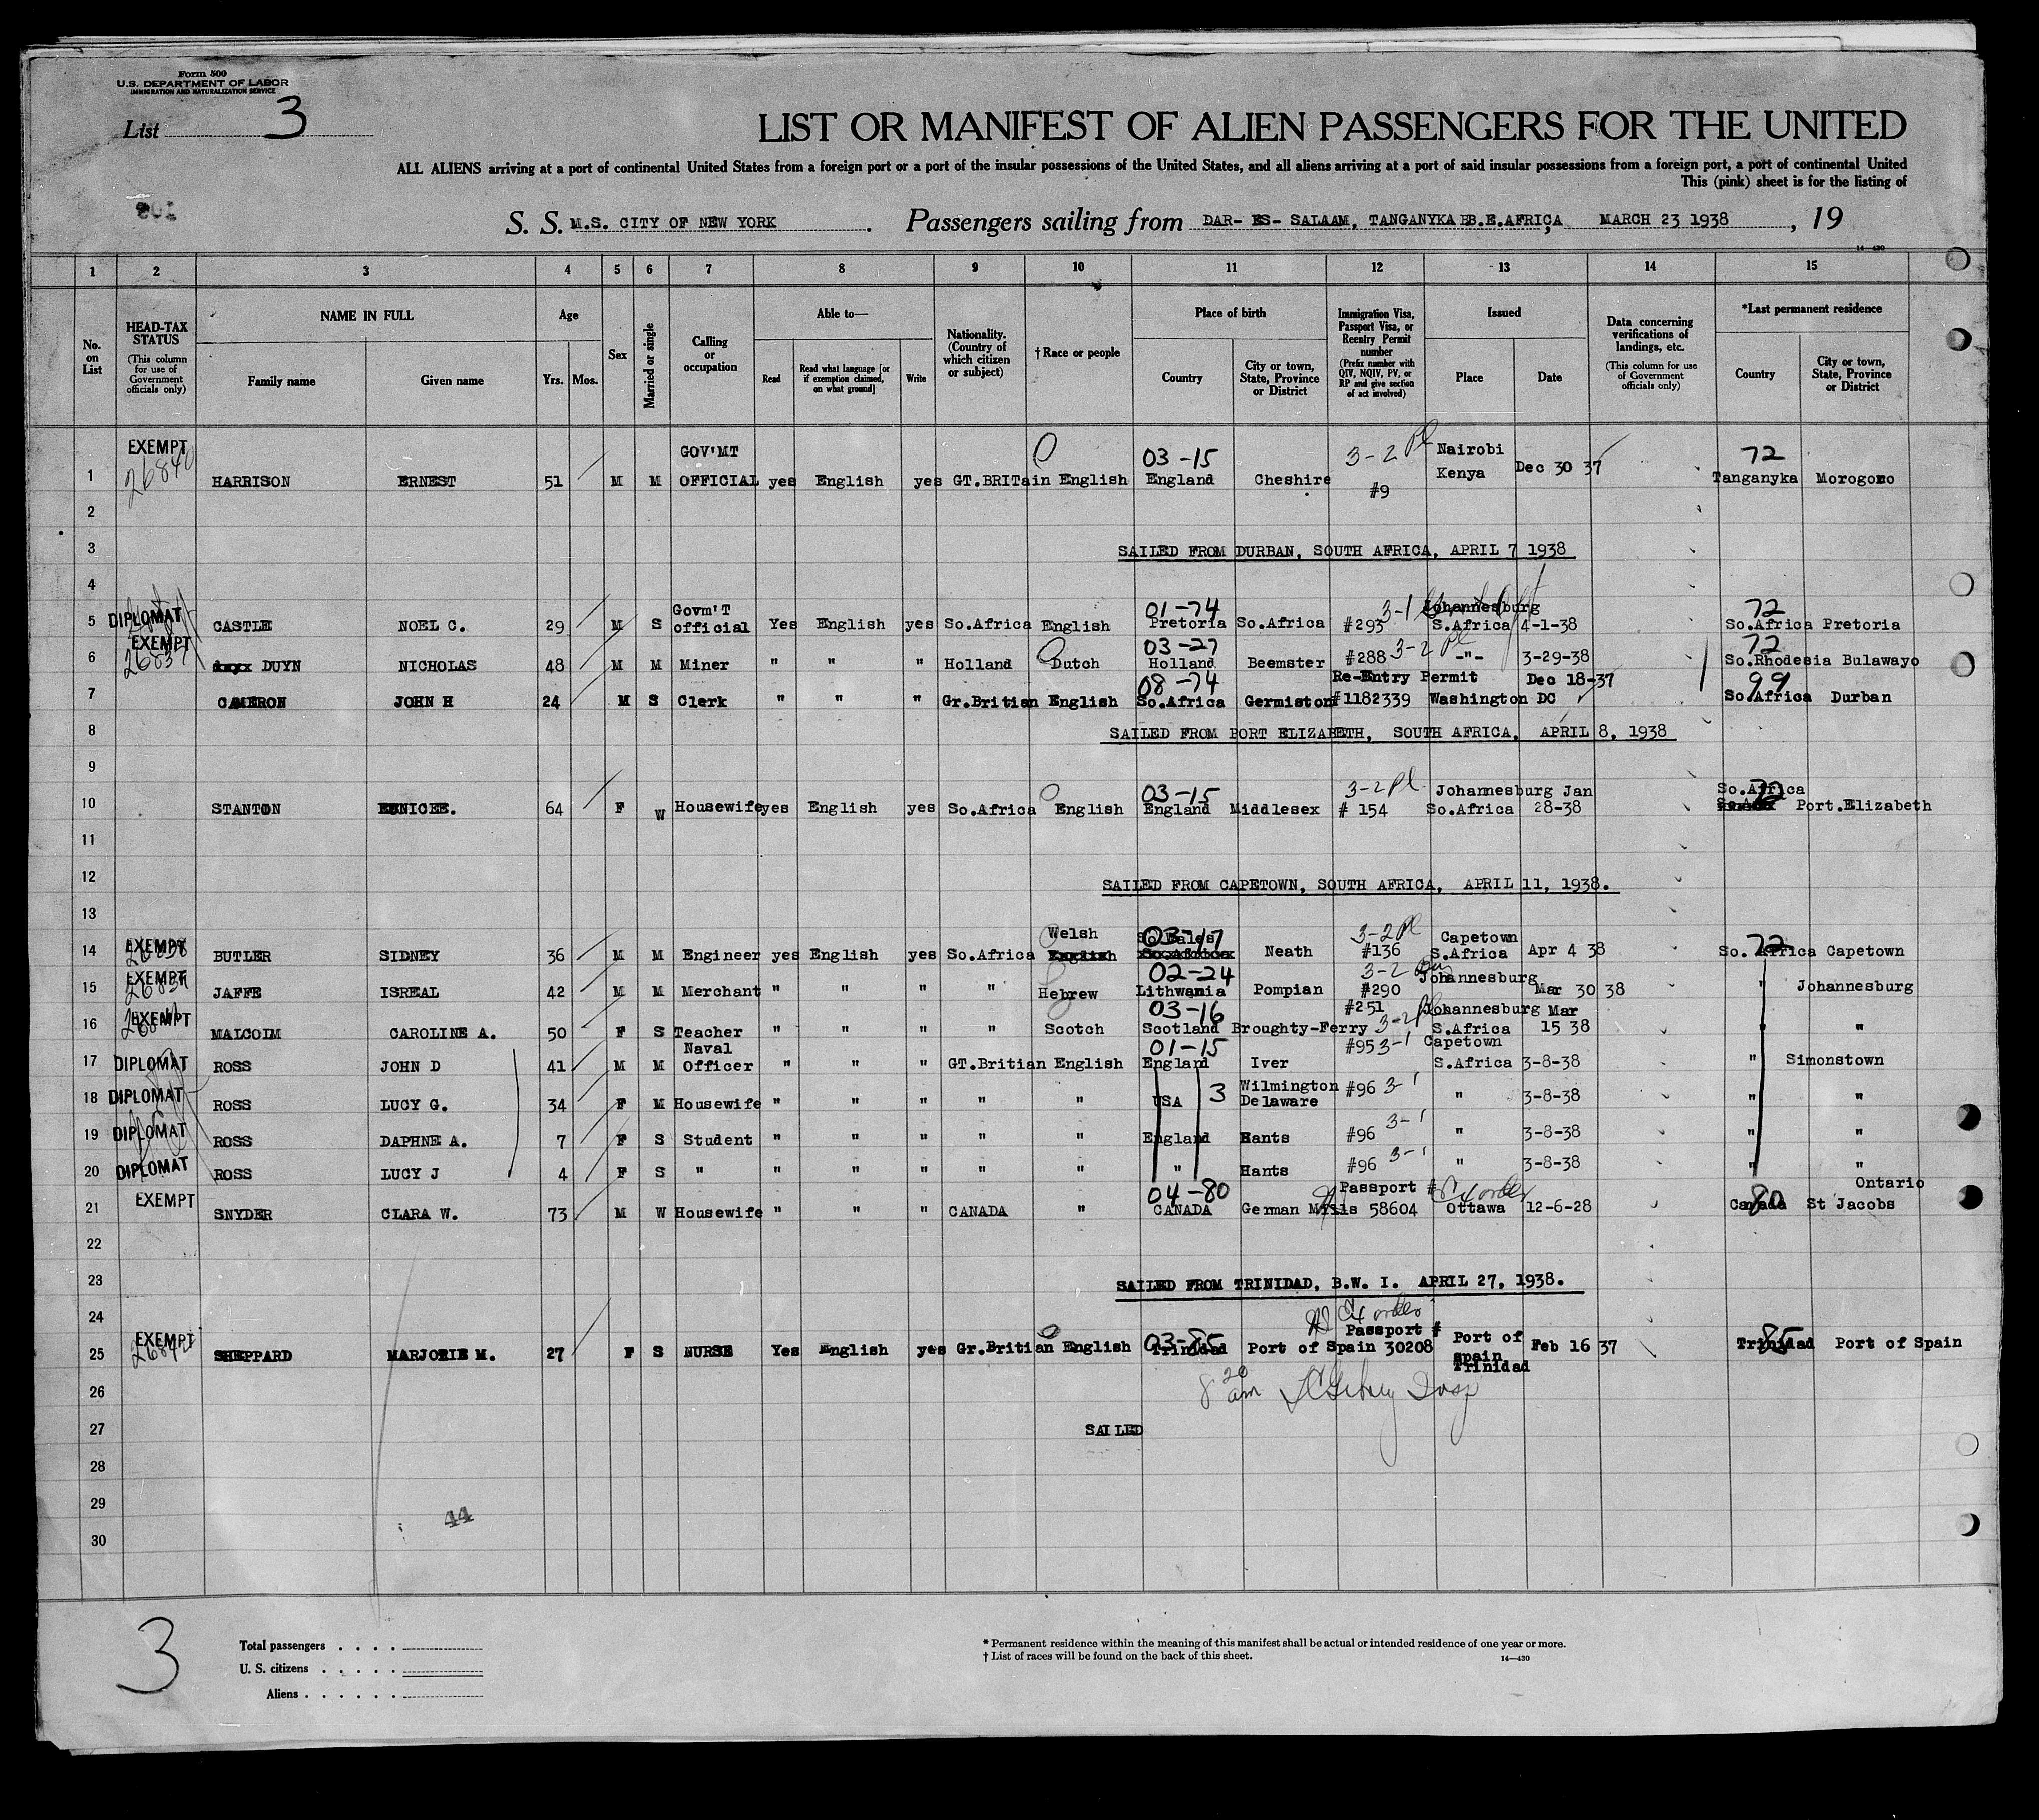 Form 500
U.S. DEPARTMENT OF LABOR
IMMIGRATION AND NATURALIZATION SERVICE
List 3
LIST OR MANIFEST OF ALIEN PASSENGERS FOR THE UNITED
ALL ALIENS arriving at a port of continental United States from a foreign port or a port of the insular possessions of the United States, and all aliens arriving at a port of said insular possessions from a foreign port, a port of continental United
This (pink) sheet is for the listing of
S. S. M.S. CITY OF NEW YORK. Passengers sailing from DAR- ES- SALAAM, TANGANYKA BB.E.AFRICA, MARCH 23 1938, 19
14—430
1 2 3 4 5 6 7 8 9 10 11 12 13 14 15
No. on List
HEAD-TAX STATUS (This column for use of Government officials only)
NAME IN FULL
Family name Given name
Age
Yrs. Mos.
Sex
Married or single
Calling or occupation
Able to—
Read Read what language [or if exemption claimed, on what ground] Write
Nationality. (Country of which citizen or subject)
† Race or people
Place of birth
Country City or town, State, Province or District
Immigration Visa, Passport Visa, or Reentry Permit number (Prefix number with QIV, NQIV, PV, or RP and give section of act involved)
Issued
Place Date
Data concerning verifications of landings, etc. (This column for use of Government officials only)
*Last permanent residence
Country City or town, State, Province or District
EXEMPT GOV'MT 03-15 3-2 Pl Nairobi 72
1 26840 HARRISON ERNEST 51 M M OFFICIAL yes English yes GT.BRITain English England Cheshire #9 Kenya Dec 30 37 Tanganyka Morogomo
2
3 SAILED FROM DURBAN, SOUTH AFRICA, APRIL 7 1938
4
DIPLOMAT Govm'T 01-74 3-1 Johannesburg 72
5 CASTLE NOEL C. 29 M S official Yes English yes So.Africa English Pretoria So.Africa #293 S.Africa 4-1-38 So.Africa Pretoria
EXEMPT 03-27 3-2 Pl 72
6 26837 DUYN NICHOLAS 48 M M Miner " " " Holland Dutch Holland Beemster #288 -"- 3-29-38 So.Rhodesia Bulawayo
08-74 Re-Entry Permit Dec 18-37 99
7 CAMERON JOHN H 24 M S Clerk " " " Gr.Britian English So.Africa Germiston #1182339 Washington DC So.Africa Durban
8 SAILED FROM PORT ELIZABETH, SOUTH AFRICA, APRIL 8, 1938
9
03-15 3-2 Pl. Johannesburg Jan So.Africa
10 STANTON EUNICEE. 64 F W Housewife yes English yes So.Africa English England Middlesex # 154 So.Africa 28-38 72 Port.Elizabeth
11
12 SAILED FROM CAPETOWN, SOUTH AFRICA, APRIL 11, 1938.
13
EXEMPT Welsh 03-17 3-2 Pl Capetown 72
14 26838 BUTLER SIDNEY 36 M M Engineer yes English yes So.Africa English So.Wales So.Africa Neath #136 S.Africa Apr 4 38 So. Africa Capetown
EXEMPT 02-24 3-2 Johannesburg
15 26839 JAFFE ISREAL 42 M M Merchant " " " " Hebrew Lithwania Pompian #290 Mar 30 38 " Johannesburg
EXEMPT 03-16 #251 Johannesburg Mar
16 MALCOLM CAROLINE A. 50 F S Teacher " " " " Scotch Scotland Broughty-Ferry 3-2 Pl S.Africa 15 38 " "
Naval 01-15 #95 3-1 Capetown
17 DIPLOMAT ROSS JOHN D 41 M M Officer " " " GT.Britian English England Iver S.Africa 3-8-38 " Simonstown
18 DIPLOMAT ROSS LUCY G. 34 F M Housewife " " " " " USA 3 Wilmington Delaware #96 3-1 " 3-8-38 " "
19 DIPLOMAT ROSS DAPHNE A. 7 F S Student " " " " " England Hants #96 3-1 " 3-8-38 " "
20 DIPLOMAT ROSS LUCY J 4 F S " " " " " " " Hants #96 3-1 " 3-8-38 " "
EXEMPT 04-80 Passport # 80 Ontario
21 SNYDER CLARA W. 73 M W Housewife " " " CANADA " CANADA German Mills 58604 Ottawa 12-6-28 Canada St Jacobs
22
23 SAILED FROM TRINIDAD, B.W. I. APRIL 27, 1938.
24
EXEMPT 03-85 Passport # Port of 85
25 SHEPPARD MARJORIE M. 27 F S NURSE Yes English yes Gr.Britian English Trinidad Port of Spain 30208 spain Trinidad Feb 16 37 Trinidad Port of Spain
26 8 20 am Insp
27 SAILED
28
29
30
44
3
Total passengers
U. S. citizens
Aliens
* Permanent residence within the meaning of this manifest shall be actual or intended residence of one year or more.
† List of races will be found on the back of this sheet.
14—430